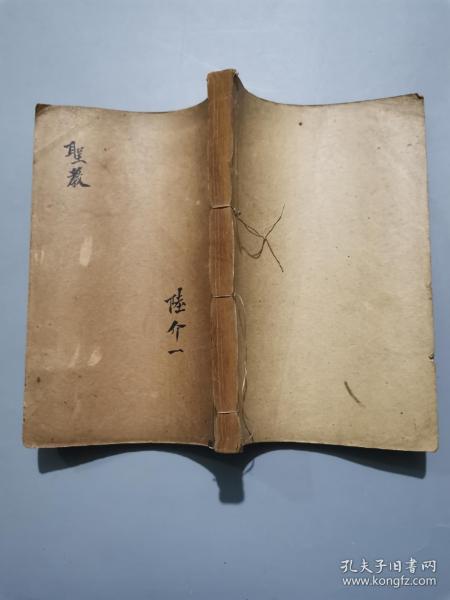 聖教
陸介一
孔夫子旧书网
www.kongfz.com